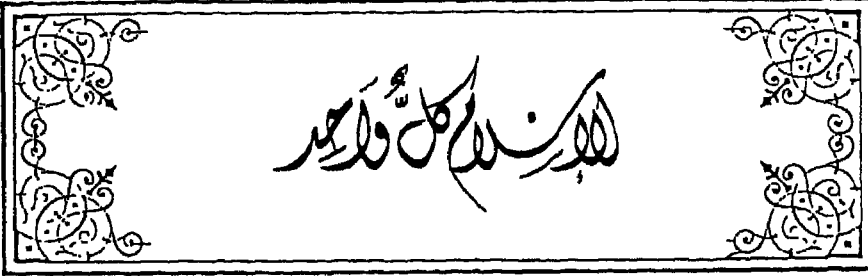 الإسلام كلٌّ وَاحِد